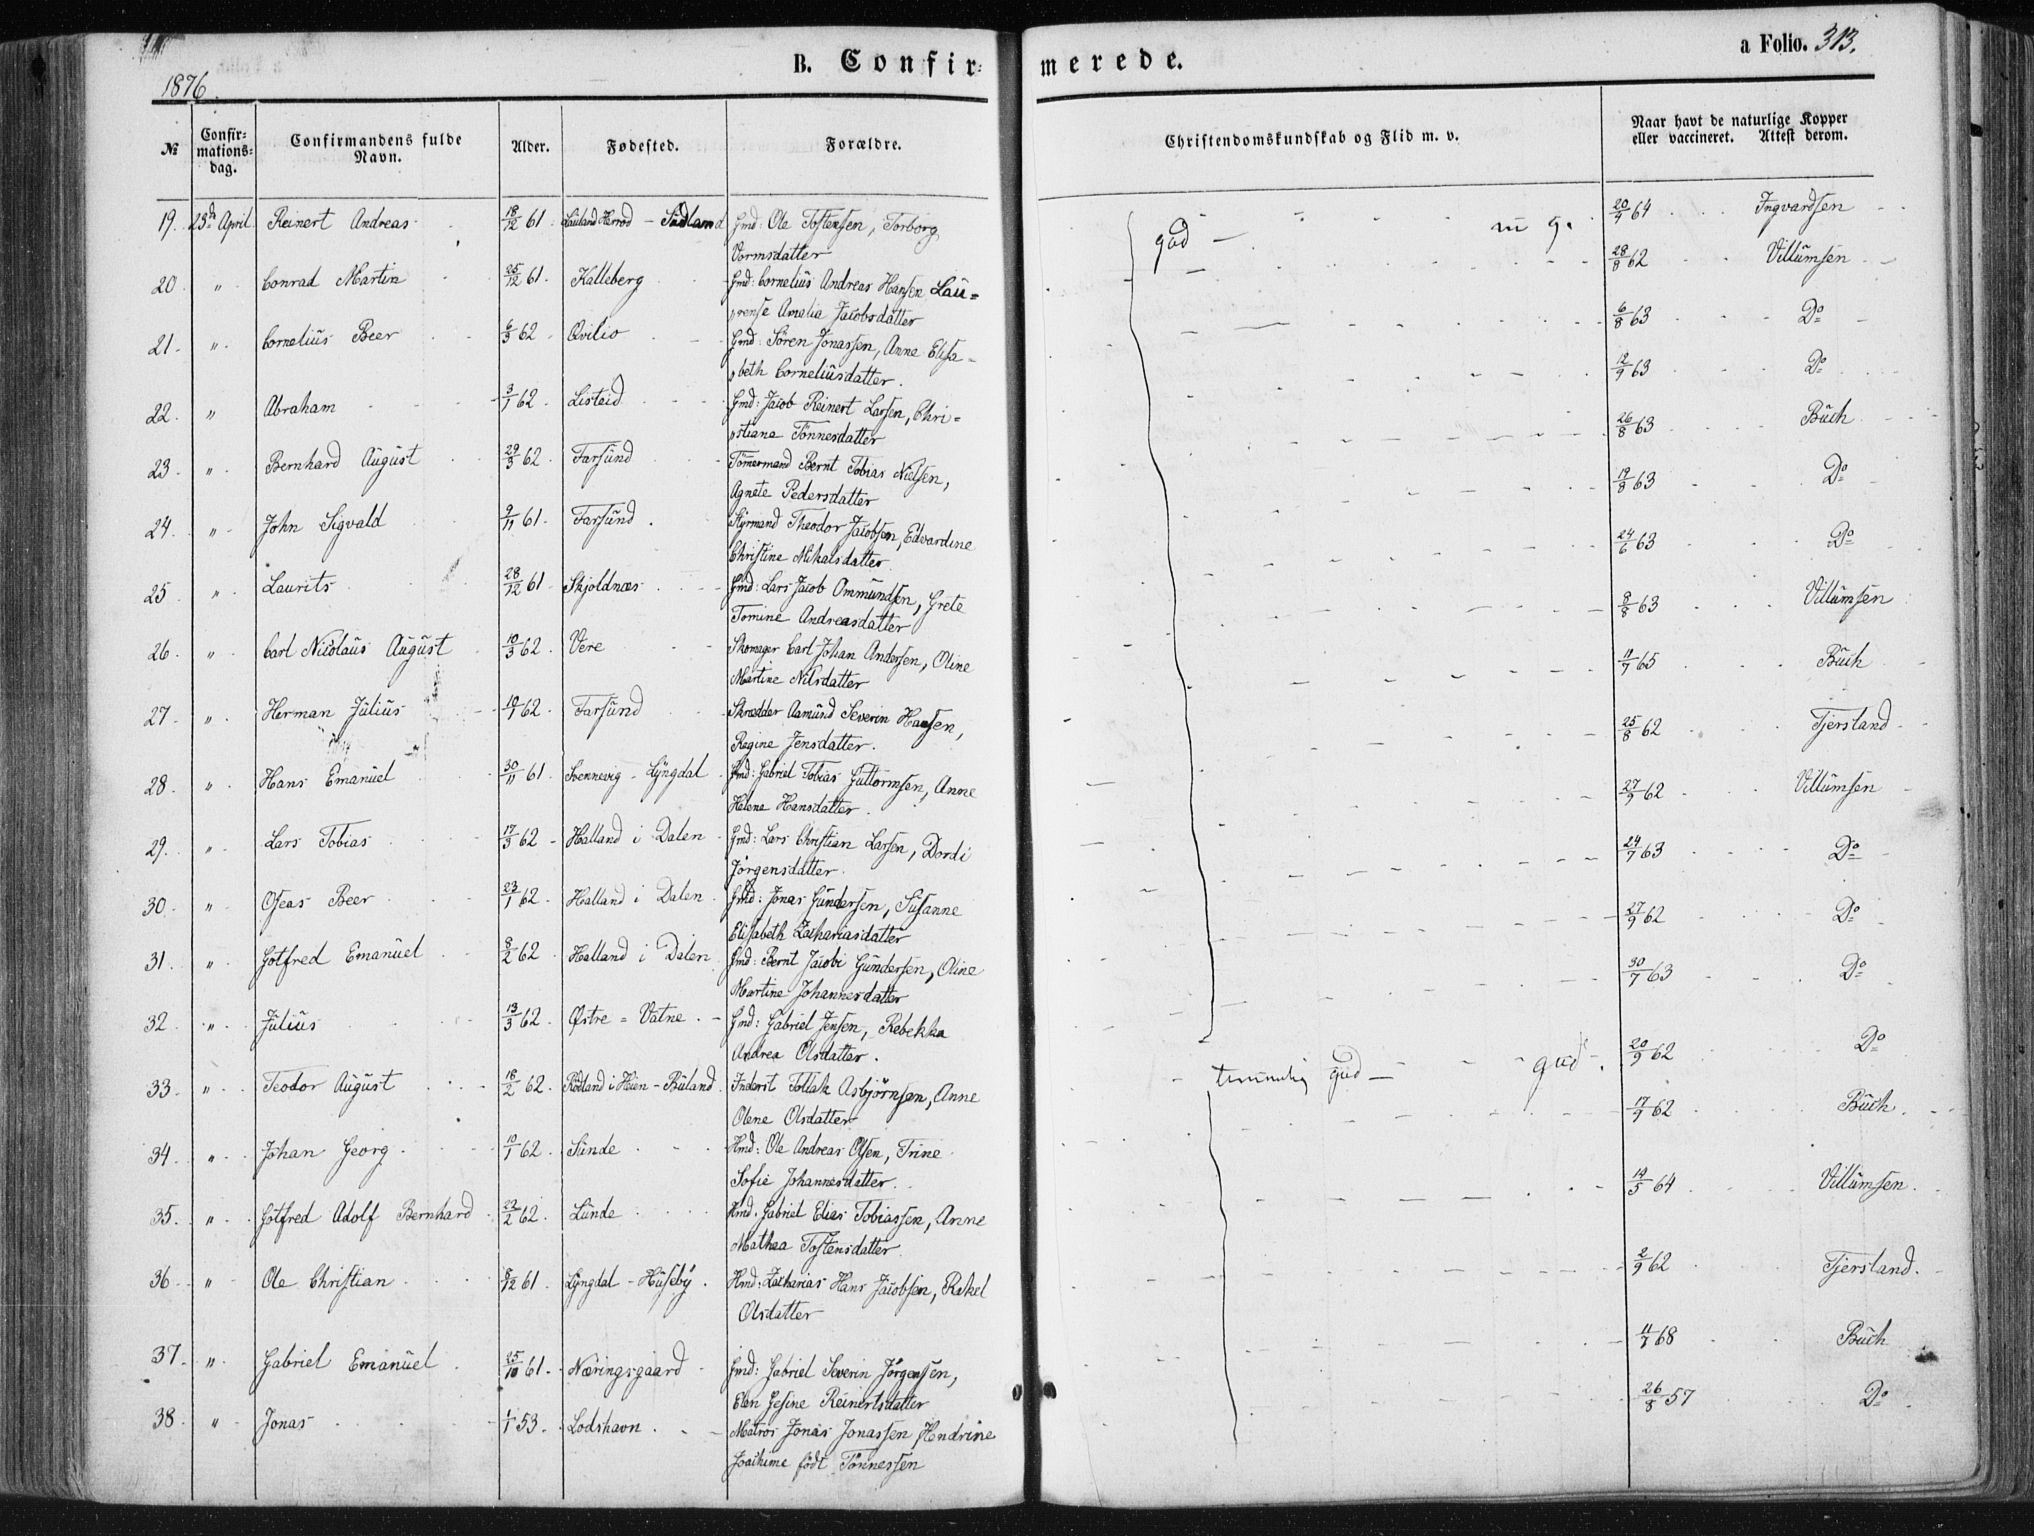 B. Confirmerede.
a Folio. 313.
1876
№
Confirmationsdag.
Confirmandens fulde Navn.
Alder.
Fødested.
Forældre.
Christendomskundskab og Flid m. v.
Naar havt de naturlige Kopper eller vaccineret. Attest derom.
19. 23d April Reinert Andreas 18/12 61 Herred - Gmd: Ole Tostensen, Torborg god — m g. 20/9 64 Ingvardsen
Vormsdatter
20 " Conrad Martin 25/12 61. Kalleberg Gmd: Cornelius Andreas Hansen Lau= 28/8 62 Villumsen
rense Amalia Jacobsdatter
21 " Cornelius Beer 6/3 62 Qvilio Gmd: Sören Jonassen, Anne Elisa- 6/8 63 Do
beth Corneliusdatter.
22. " Abraham 3/1 62 Listeid Gmd: Jacob Reinert Larsen, Chri- 12/9 63 Do
stiane Tönnesdatter
23 " Bernhard August 29/3 62 Farsund Tömmermand Bernt Tobias Nielsen, 26/8 63 Buch
Agnete Pedersdatter
24. " John Sigvald 9/11 61. Farsund. Styrmand Theodor Jacobsen, Edvardine 19/8 63 Do
Christine Mikalsdatter.
25 " Laurits 28/12 61 Skjoldnæs Gmd: Lars Jacob Ommundsen, Grete 24/6 63 Do
Tomine Andreasdatter
26 " Carl Nicolaus August 10/3 62. Vere Skomager Carl Johan Andersen, Oline 8/8 63 Villumsen
Martine Nilsdatter
27 " Herman Julius 10/1 62. Farsund Skrædder Aamund Severin Hansen, 11/7 65 Buch
Regine Jensdatter.
28 " Hans Emanuel 30/11 61 Svennevig - Lyngdal Gmd: Gabriel Tobias Guttormsen, Anne 25/8 62 Tjersland
Helene Hansdatter.
29. " Lars Tobias 17/3 62 Halland i Dalen Gmd: Lars Christian Larsen, Dordi 27/9 62 Villumsen
Jörgensdatter.
30 " Oseas Beer 23/1 62 Halland i Dalen Gmd: Jonas Gundersen, Susanne 24/7 63 Do
Elisabeth Zachariasdatter
31 " Gotfred Emanuel 8/2 62 Halland i Dalen Gmd: Bernt Jacobi Gundersen, Oline 27/9 62 Do
Martine Johannesdatter
32 " Julius 13/3 62. Østre = Vatne. Gmd: Gabriel Jensen, Rebekka 30/7 63 Do
Andrea Olsdatter.
33 " Teodor August 18/2 62. Rödland i - Büland Inderst Tollak Asbjörnsen, Anne temmelig god — god. 20/9 62 Do
Olene Olsdatter
34 " Johan Georg 10/1 62. Sunde Hmd: Ole Andreas Olsen, Trine 17/9 62 Buch.
Sofie Johannesdatter.
35. " Gotfred Adolf Bernhard 22/2 62. Lunde Hmd. Gabriel Elias Tobiassen, Anne 14/5 64 Villumsen.
Mathea Tostensdatter
36 " Ole Christian 8/12 61. Lyngdal - Huseby. Hmd: Zacharias Hans Jacobsen, Rakel 2/9 62 Tjersland.
Olsdatter
37. " Gabriel Emanuel 25/10 61. Næringsgaard Gmd: Gabriel Severin Jörgensen, 11/7 68 Buch
Elen Gesine Reinertsdatter
38 " Jonas 1/1 53. Lodshavn. Matros Jonas Jonassen Hendrine 26/8 57 Do
Joachime födt Tönnessen